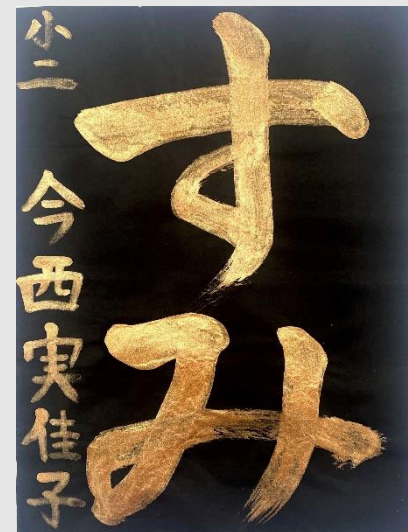 すみ
小二 今西実佳子